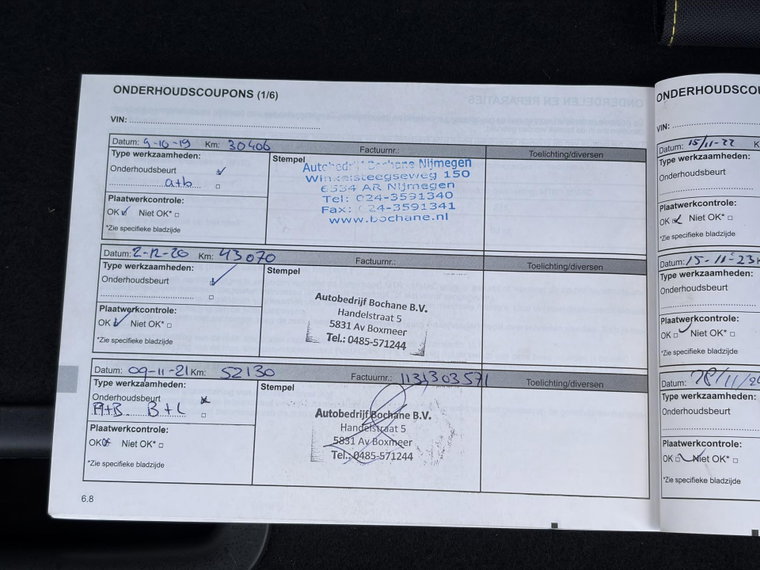 ONDERHOUDSCOUPONS (1/6)
VIN:
Datum: 9-10-19 Km: 30406 Factuurnr.: Toelichting/diversen
Type werkzaamheden:
Onderhoudsbeurt
a+b
Plaatwerkcontrole:
OK Niet OK*
*Zie specifieke bladzijde
Stempel
Autobedrijf Bochane Nijmegen
Winkelsteegseweg 150
6534 AR Nijmegen
Tel: 024-3591340
Fax: 024-3591341
www.bochane.nl
Datum: 2-12-20 Km: 43070 Factuurnr.: Toelichting/diversen
Type werkzaamheden:
Onderhoudsbeurt
Plaatwerkcontrole:
OK Niet OK*
*Zie specifieke bladzijde
Stempel
Autobedrijf Bochane B.V.
Handelstraat 5
5831 Av Boxmeer
Tel.: 0485-571244
Datum: 09-11-21 Km: 52130 Factuurnr.: Toelichting/diversen
Type werkzaamheden:
Onderhoudsbeurt
B+L
Plaatwerkcontrole:
OK Niet OK*
*Zie specifieke bladzijde
Stempel
Autobedrijf Bochane B.V.
Handelstraat 5
5831 Av Boxmeer
Tel.: 0485-571244
6.8
ONDERHOUDSCOU
VIN:
Datum: 15/11-22 K
Type werkzaamheden:
Onderhoudsbeurt
Plaatwerkcontrole:
OK Niet OK*
*Zie specifieke bladzijde
Datum: 15-11-23 K
Type werkzaamheden:
Onderhoudsbeurt
Plaatwerkcontrole:
OK Niet OK*
*Zie specifieke bladzijde
Datum:
Type werkzaamheden:
Onderhoudsbeurt
Plaatwerkcontrole:
OK Niet OK*
*Zie specifieke bladzijde